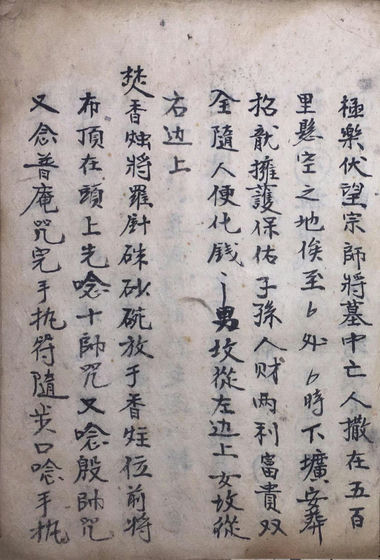 極樂伏望宗師將墓中亡人撒在五百
里懸空之地俟至ㄣ外ㄣ時下壙安葬
招龍擁護保佑子孫人财两利富貴双
全隨人便化銭〻男坟從左边上女坟從
右边上
焚香燭將羅針硃砂硯放于香炷位前將
布頂在頭上先唸十帥咒又唸殷帥咒
又念普庵咒完手执符隨步口唸手执